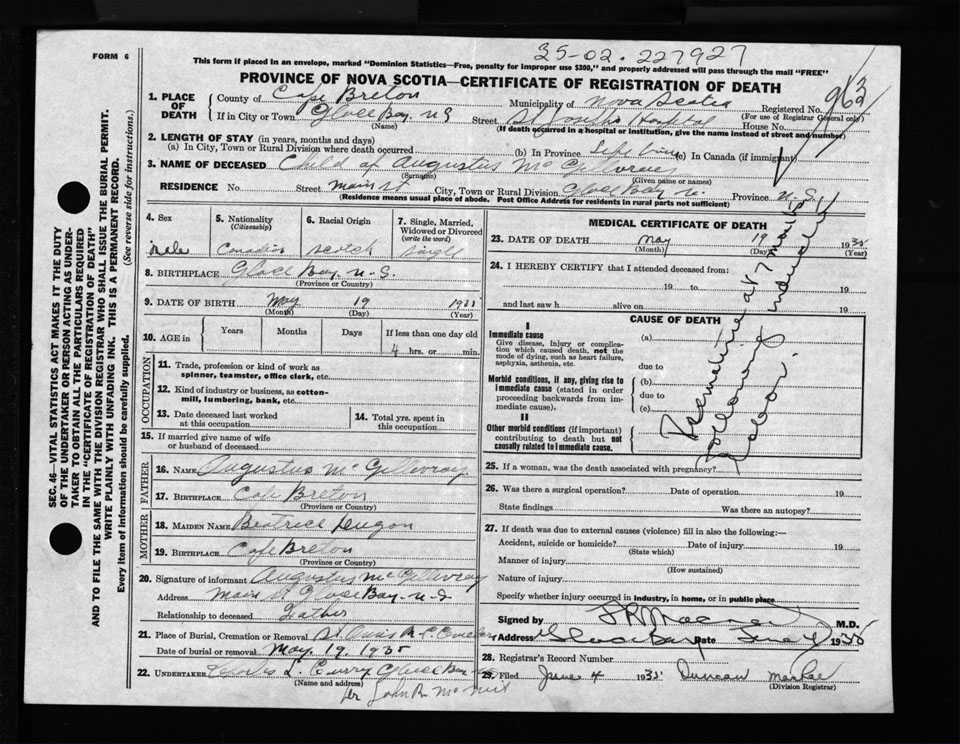 35-02. 227927
FORM 6
This form if placed in an envelope, marked "Dominion Statistics—Free, penalty for improper use $300," and properly addressed will pass through the mail "FREE"
PROVINCE OF NOVA SCOTIA—CERTIFICATE OF REGISTRATION OF DEATH
963
1. PLACE OF DEATH
County of Cape Breton Municipality of Nova Scotia Registered No.
(For use of Registrar General only)
If in City or Town Glace Bay, N S Street St Josephs Hospital House No.
(Name) (If death occurred in a hospital or institution, give the name instead of street and number)
2. LENGTH OF STAY (in years, months and days)
(a) In City, Town or Rural Division where death occurred (b) In Province Life time (c) In Canada (if immigrant)
3. NAME OF DECEASED Child of Augustus McGillivray
(Surname) (Given name or names)
RESIDENCE No. Street Main St City, Town or Rural Division Glace Bay Province N. S.
(Residence means usual place of abode. Post Office Address for residents in rural parts not sufficient)
4. Sex 5. Nationality (Citizenship) 6. Racial Origin 7. Single, Married, Widowed or Divorced (write the word)
Male Canadian Scotch Single
8. BIRTHPLACE Glace Bay. N. S.
(Province or Country)
9. DATE OF BIRTH May 19 1935
(Month) (Day) (Year)
10. AGE in Years Months Days If less than one day old
4 hrs. or min.
OCCUPATION
11. Trade, profession or kind of work as spinner, teamster, office clerk, etc.
12. Kind of industry or business, as cotton-mill, lumbering, bank, etc.
13. Date deceased last worked at this occupation
14. Total yrs. spent in this occupation
15. If married give name of wife or husband of deceased
FATHER
16. NAME Augustus McGillivray
17. BIRTHPLACE Cape Breton
(Province or Country)
MOTHER
18. MAIDEN NAME Beatrice Dugon
19. BIRTHPLACE Cape Breton
(Province or Country)
20. Signature of informant Augustus McGillivray
Address Main St Glace Bay. N S
Relationship to deceased Father
21. Place of Burial, Cremation or Removal St Anns R. C. Cemetery
Date of burial or removal May. 19. 1935
22. UNDERTAKER L. Curry Glace Bay
(Name and address)
Per John R. McNeil
MEDICAL CERTIFICATE OF DEATH
23. DATE OF DEATH May 19 1935
(Month) (Day) (Year)
24. I HEREBY CERTIFY that I attended deceased from:
19 to 19
and last saw h alive on 19
CAUSE OF DEATH
I
Immediate cause
Give disease, injury or complication which caused death, not the mode of dying, such as heart failure, asphyxia, asthenia, etc.
(a)
due to
Morbid conditions, if any, giving rise to immediate cause (stated in order proceeding backwards from immediate cause).
(b)
due to
(c)
II
Other morbid conditions (if important) contributing to death but not causally related to I immediate cause.
Premature at 7 months
following
labour.
25. If a woman, was the death associated with pregnancy?
26. Was there a surgical operation? Date of operation 19
State findings Was there an autopsy?
27. If death was due to external causes (violence) fill in also the following:—
Accident, suicide or homicide? Date of injury 19
(State which)
Manner of injury
(How sustained)
Nature of injury
Specify whether injury occurred in industry, in home, or in public place
Signed by M.D.
Address Glace Bay Date June 4 1935
28. Registrar's Record Number
29. Filed June 4 1935 Duncan MacRae
(Division Registrar)
SEC. 46—VITAL STATISTICS ACT MAKES IT THE DUTY
OF THE UNDERTAKER OR PERSON ACTING AS UNDER-
TAKER TO OBTAIN ALL THE PARTICULARS REQUIRED
IN THE "CERTIFICATE OF REGISTRATION OF DEATH"
AND TO FILE THE SAME WITH THE DIVISION REGISTRAR WHO SHALL ISSUE THE BURIAL PERMIT.
WRITE PLAINLY WITH UNFADING INK. THIS IS A PERMANENT RECORD.
Every item of information should be carefully supplied.
(See reverse side for instructions.)